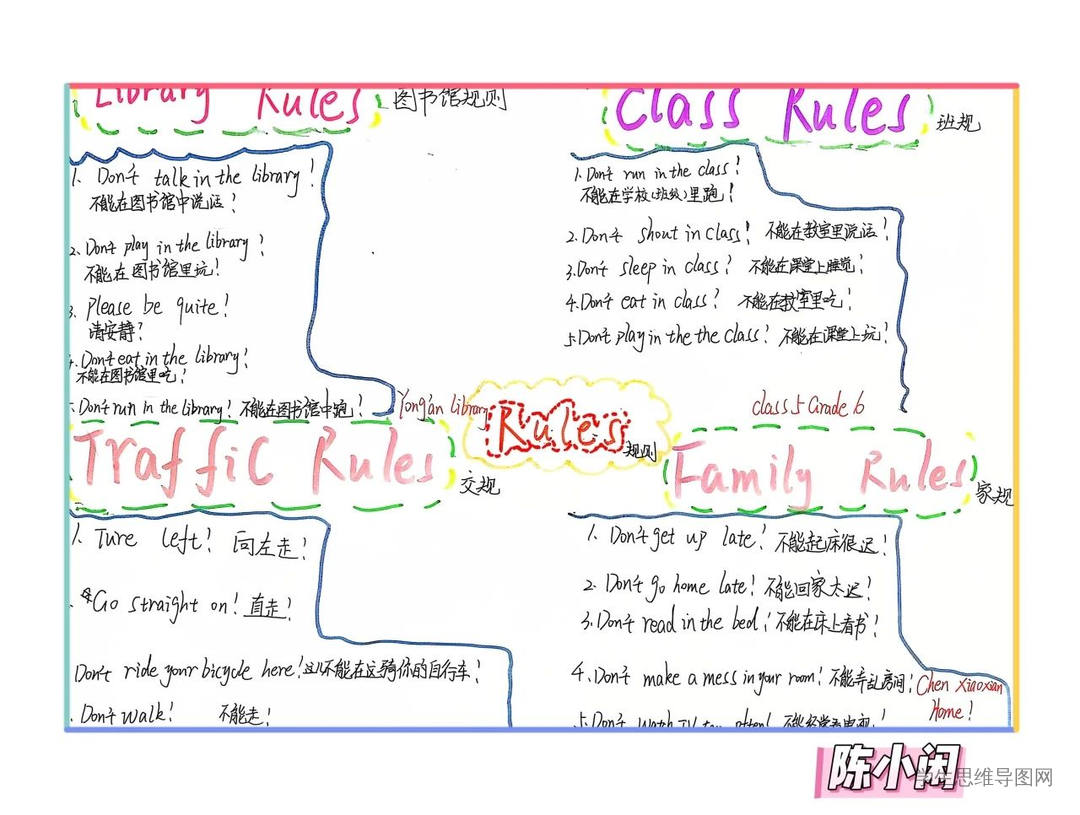 Library Rules 图书馆规则
1. Don't talk in the library!
不能在图书馆中说话!
2. Don't play in the library!
不能在图书馆里玩!
3. Please be quite!
请安静!
4. Don't eat in the library!
不能在图书馆里吃!
Don't run in the library! 不能在图书馆中跑!
Yong'an Library
Class Rules 班规
1. Don't run in the class!
不能在学校(班级)里跑!
2. Don't shout in class! 不能在教室里说话!
3. Don't sleep in class! 不能在课堂上睡觉!
4. Don't eat in class! 不能在教室里吃!
5. Don't play in the the class! 不能在课堂上玩!
class 5 Grade 6
Rules 规则
Traffic Rules 交规
1. Ture left! 向左走!
Go straight on! 直走!
Don't ride your bicycle here! 不能在这骑你的自行车!
Don't walk! 不能走!
Family Rules 家规
1. Don't get up late! 不能起床很迟!
2. Don't go home late! 不能回家太迟!
3. Don't read in the bed! 不能在床上看书!
4. Don't make a mess in your room! 不能弄乱房间!
Chen Xiaoxian
Home!
5. Don't watch TV too often! 不能经常看电视!
陈小闲
学生思维导图网